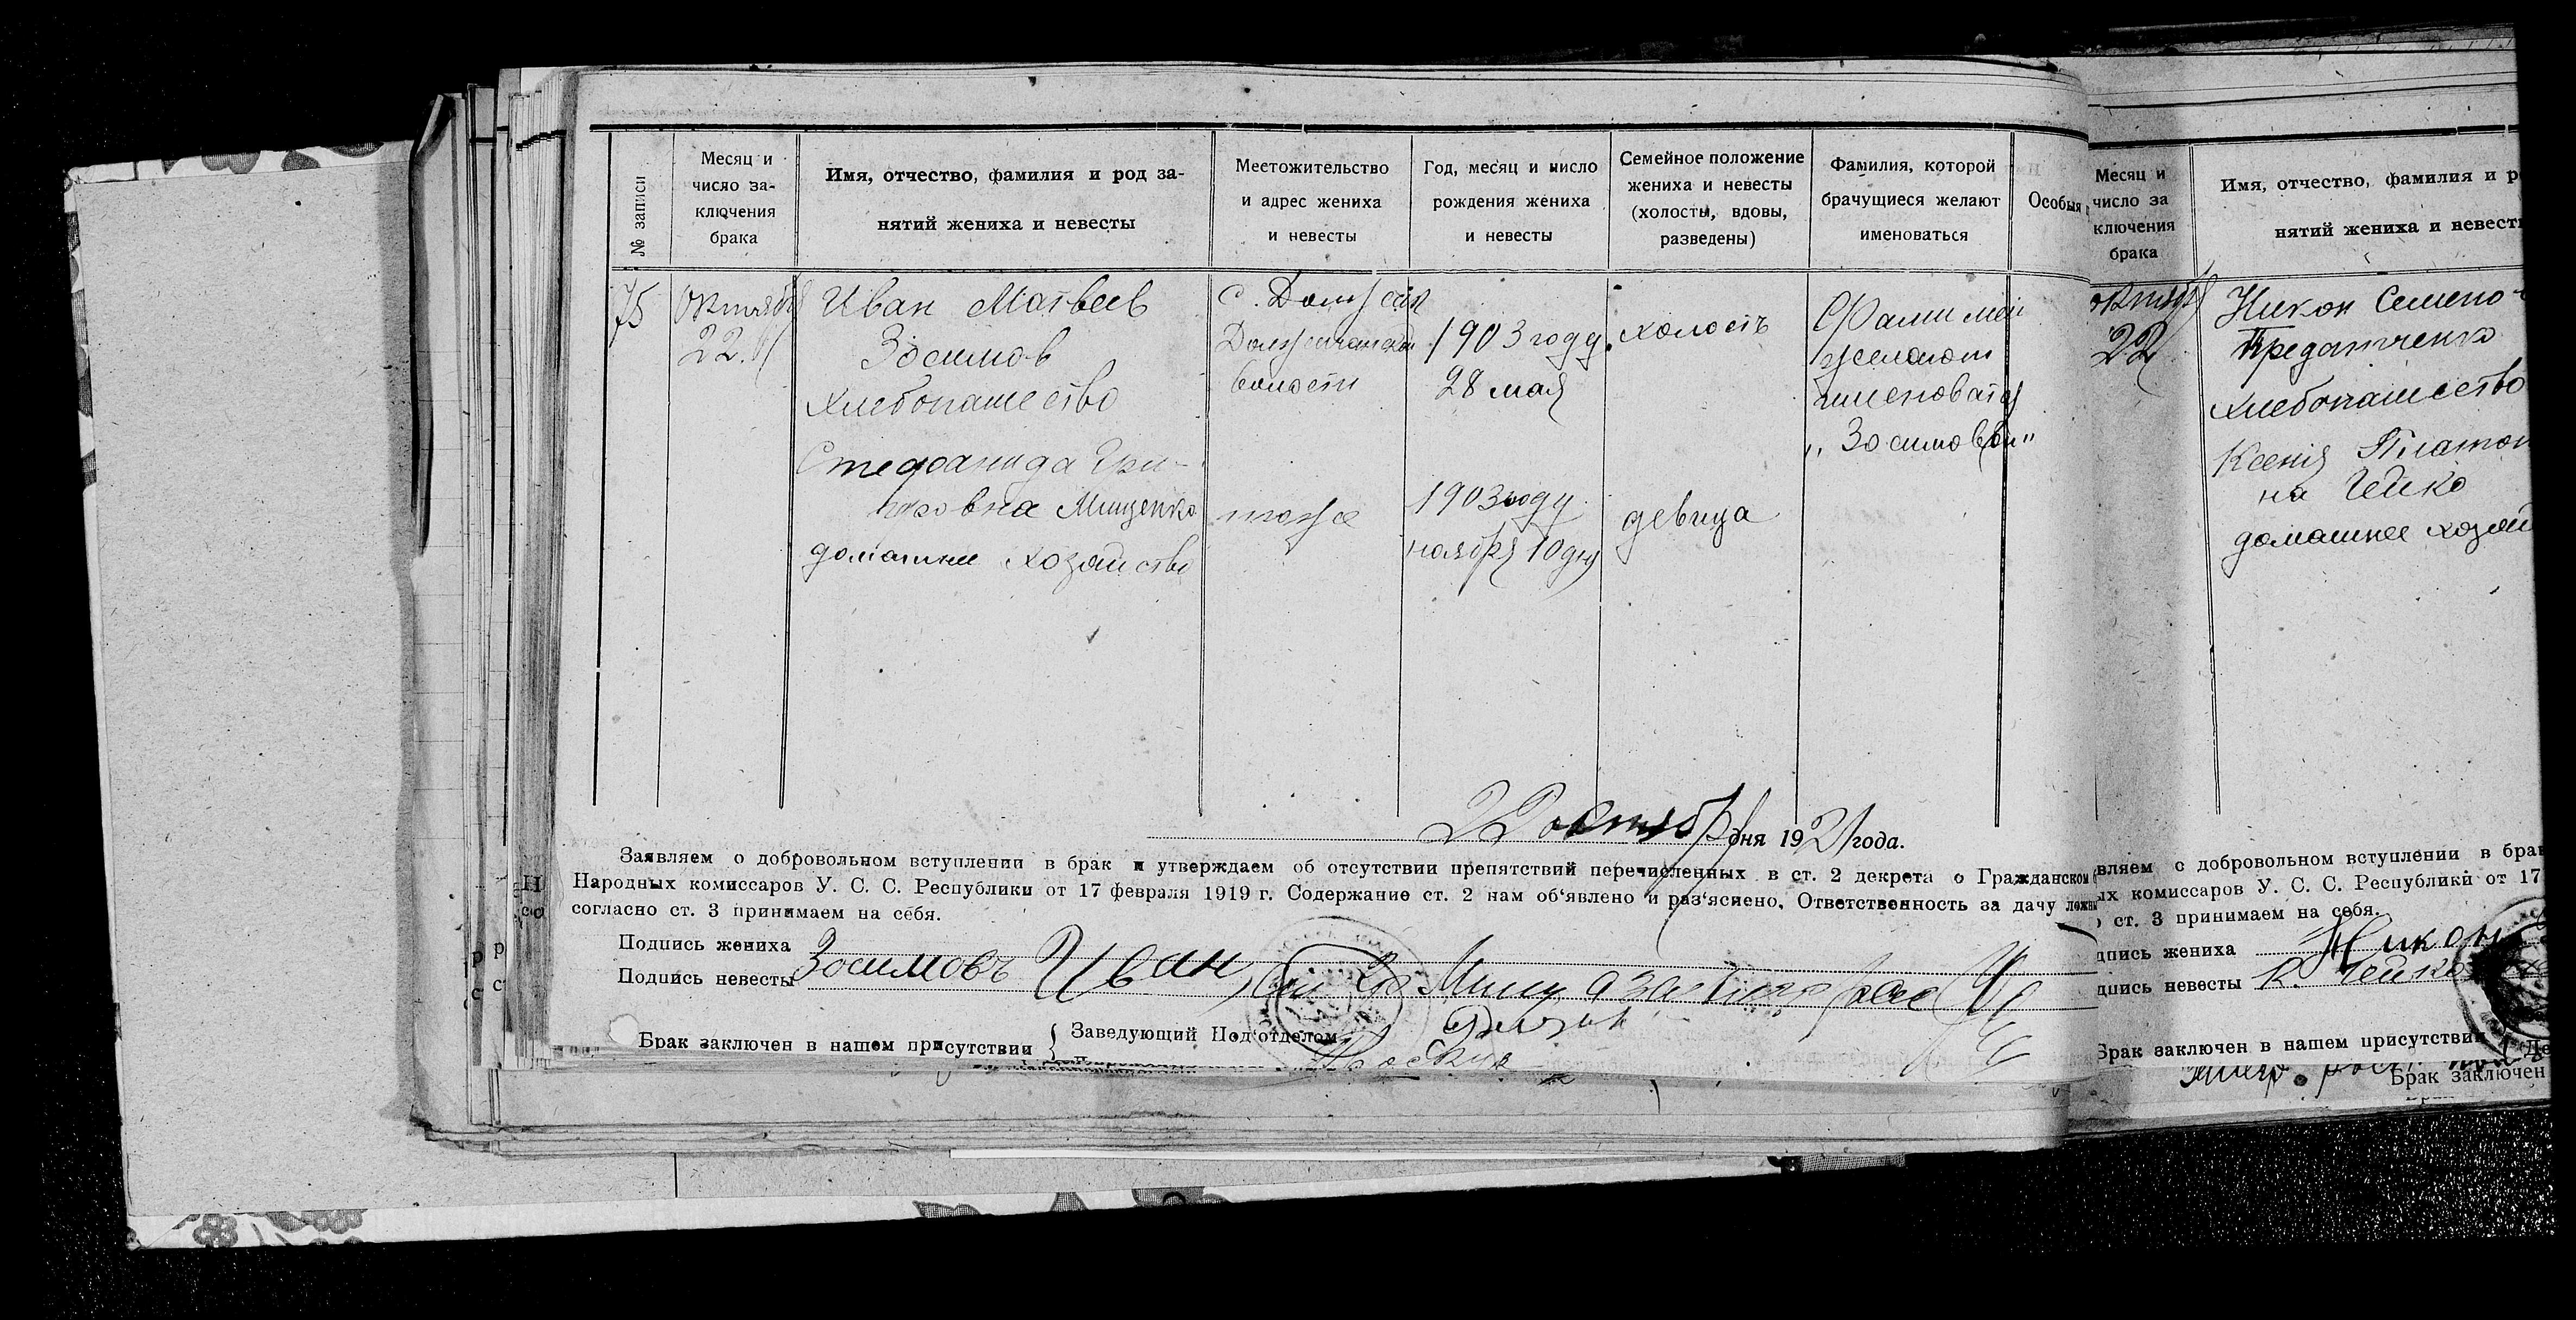 № записи
Месяц и
число за-
ключения
брака
Имя, отчество, фамилия и род за-
нятий жениха и невесты
Местожительство
и адрес жениха
и невесты
Год, месяц и число
рождения жениха
и невесты
Семейное положение
жениха и невесты
(холосты, вдовы,
разведены)
Фамилия, которой
брачущиеся желают
именоваться
Особыя
75
Октября
22
Иван Матвеев
Зосимов
хлебопашество
Стефанида
Мищенко
домашнее хозяйство
с.
волости
тоже
1903 году
28 мая
1903 году
ноября 10 дня
холостъ
девица
Фамилией
желают
именоватся
„Зосимовы"
22 октября дня 1921 года.
Заявляем о добровольном вступлении в брак и утверждаем об отсутствии препятствий перечисленных в ст. 2 декрета о Гражданском
Народных комиссаров У. С. С. Республики от 17 февраля 1919 г. Содержание ст. 2 нам об‘явлено и раз‘яснено. Ответственность за дачу ложн
согласно ст. 3 принимаем на себя.
Подпись жениха
Зосимовъ Иван
Подпись невесты
Брак заключен в нашем присутствии
Заведующий Под‘отделом
Месяц и
число за
ключения
брака
Имя, отчество, фамилия и р
нятий жениха и невест
октября
22
Никон Семено-
хлебопашество
Ксения Платон
на Чейко
домашнее хозяй
вляем о добровольном вступлении в бра
ых комиссаров У. С. С. Республики от 17
ст. 3 принимаем на себя.
дпись жениха Никон
дпись невесты К. Чейко
Брак заключен в нашем присутствии
Брак заключен